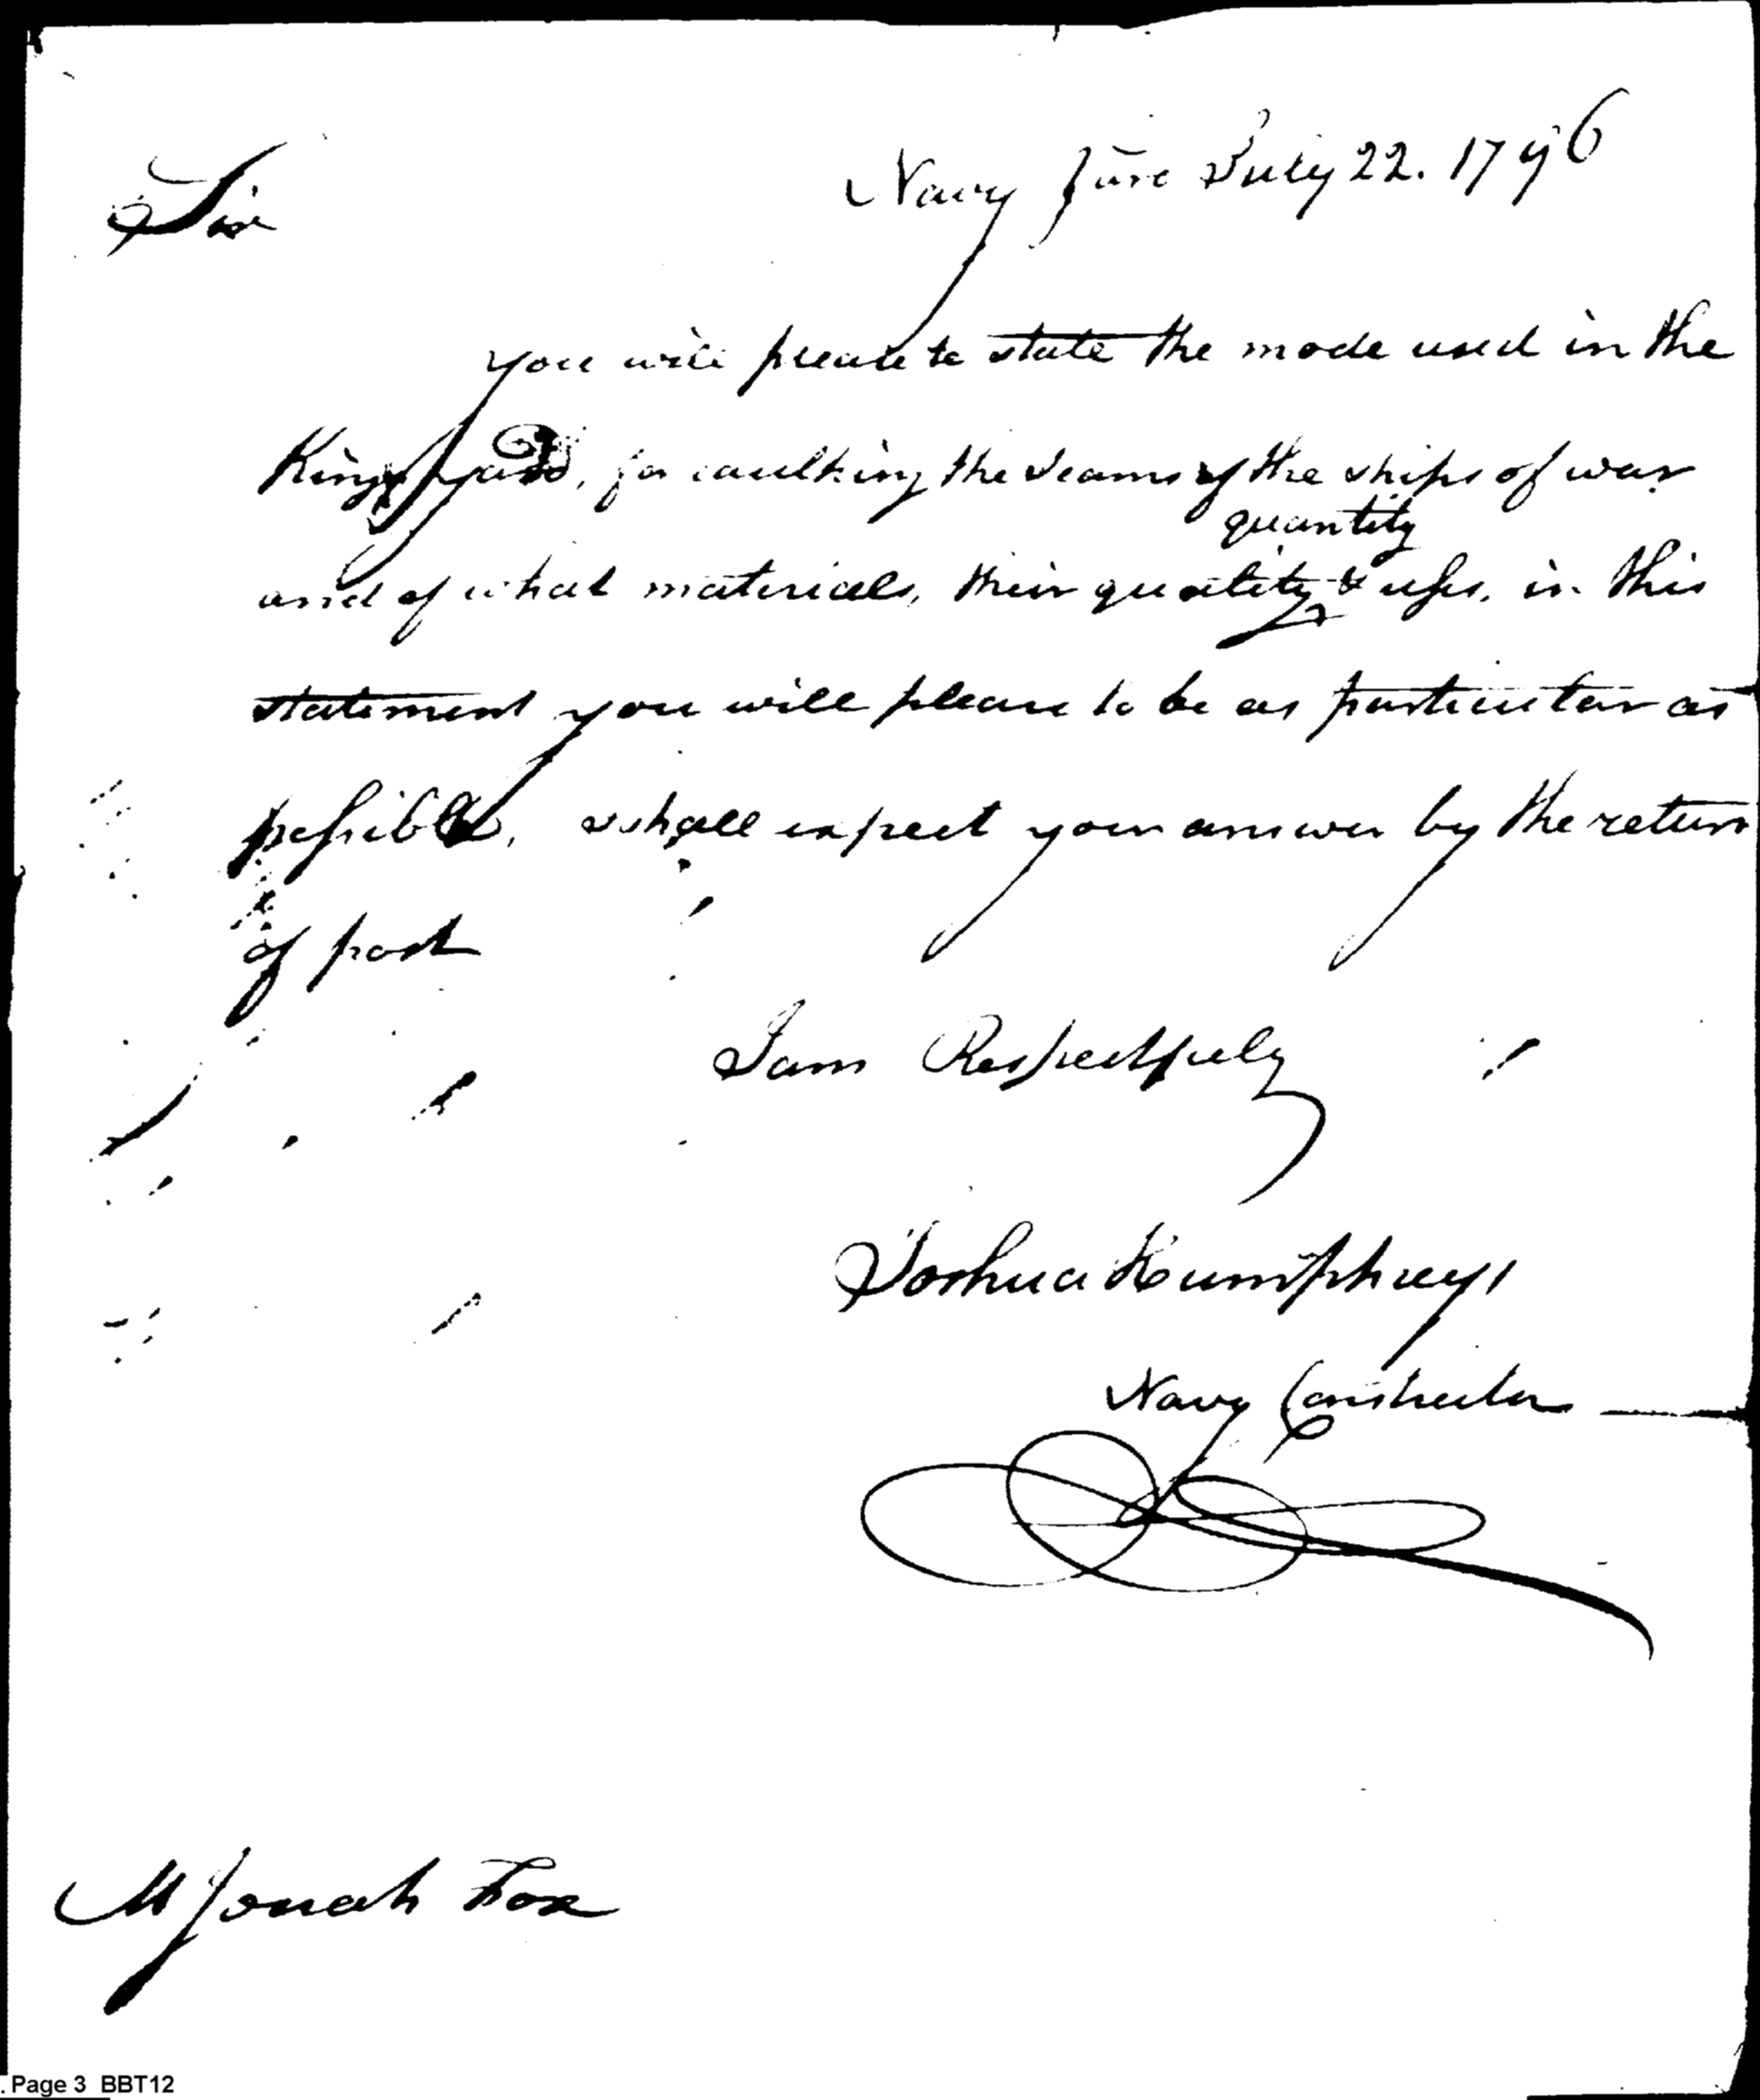 Navy Yard July 22. 1796
Sir
you will please to state the mode used in the
Kings yard, for caulking the seams of the ships of war
quantity
and of what materials, their quality & uses, in this
statement you will please to be as particular as
possible, shall expect your answer by the return
of post
I am Respectfuly
Joshua Humphreys
Navy Constructor
M Jonah Fox
. Page 3 BBT12